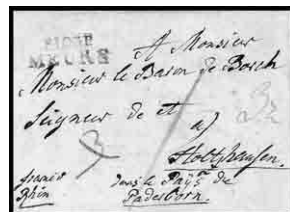 MEURS
A Monsieur
Monsieur le Baron de Bosch
Seigneur de et
a)
Holtzhausen.
dans le Pays de
Paderborn.
Rhin